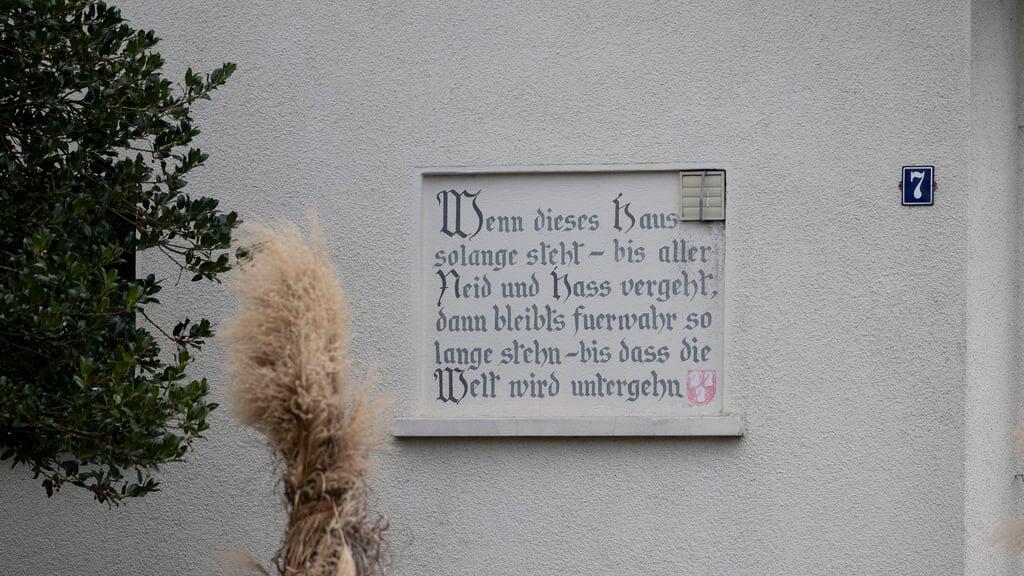 Wenn dieses Haus
solange steht – bis aller
Neid und Hass vergeht,
dann bleibt's fuerwahr so
lange stehn – bis dass die
Welt wird untergehn
7